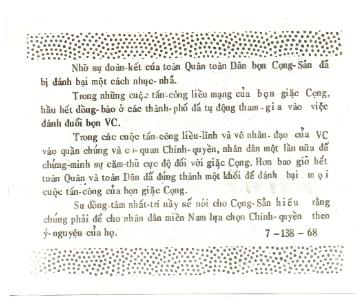 Nhờ sự đoàn-kết của toàn Quân toàn Dân bọn Cọng-Sản đã
bị đánh bại một cách nhục-nhã.
Trong những cuộc tấn-công liều mạng của bọn giặc Cọng,
hầu hết đồng-bào ở các thành-phố đã tự động tham-gia vào việc
đánh đuổi bọn VC.
Trong các cuộc tấn-công liều-lĩnh và vô nhân-đạo của VC
vào quần chúng và cơ-quan Chính-quyền, nhân dân một lần nữa đã
chứng-minh sự căm-thù cực độ đối với giặc Cọng. Hơn bao giờ hết
toàn Quân và toàn Dân đã đứng thành một khối để đánh bại mọi
cuộc tấn-công của bọn giặc Cọng.
Sự đồng-tâm nhất-trí này sẽ nói cho Cọng-Sản hiểu rằng
chúng phải để cho nhân dân miền Nam lựa chọn Chính-quyền theo
ý-nguyện của họ.
7-138-68